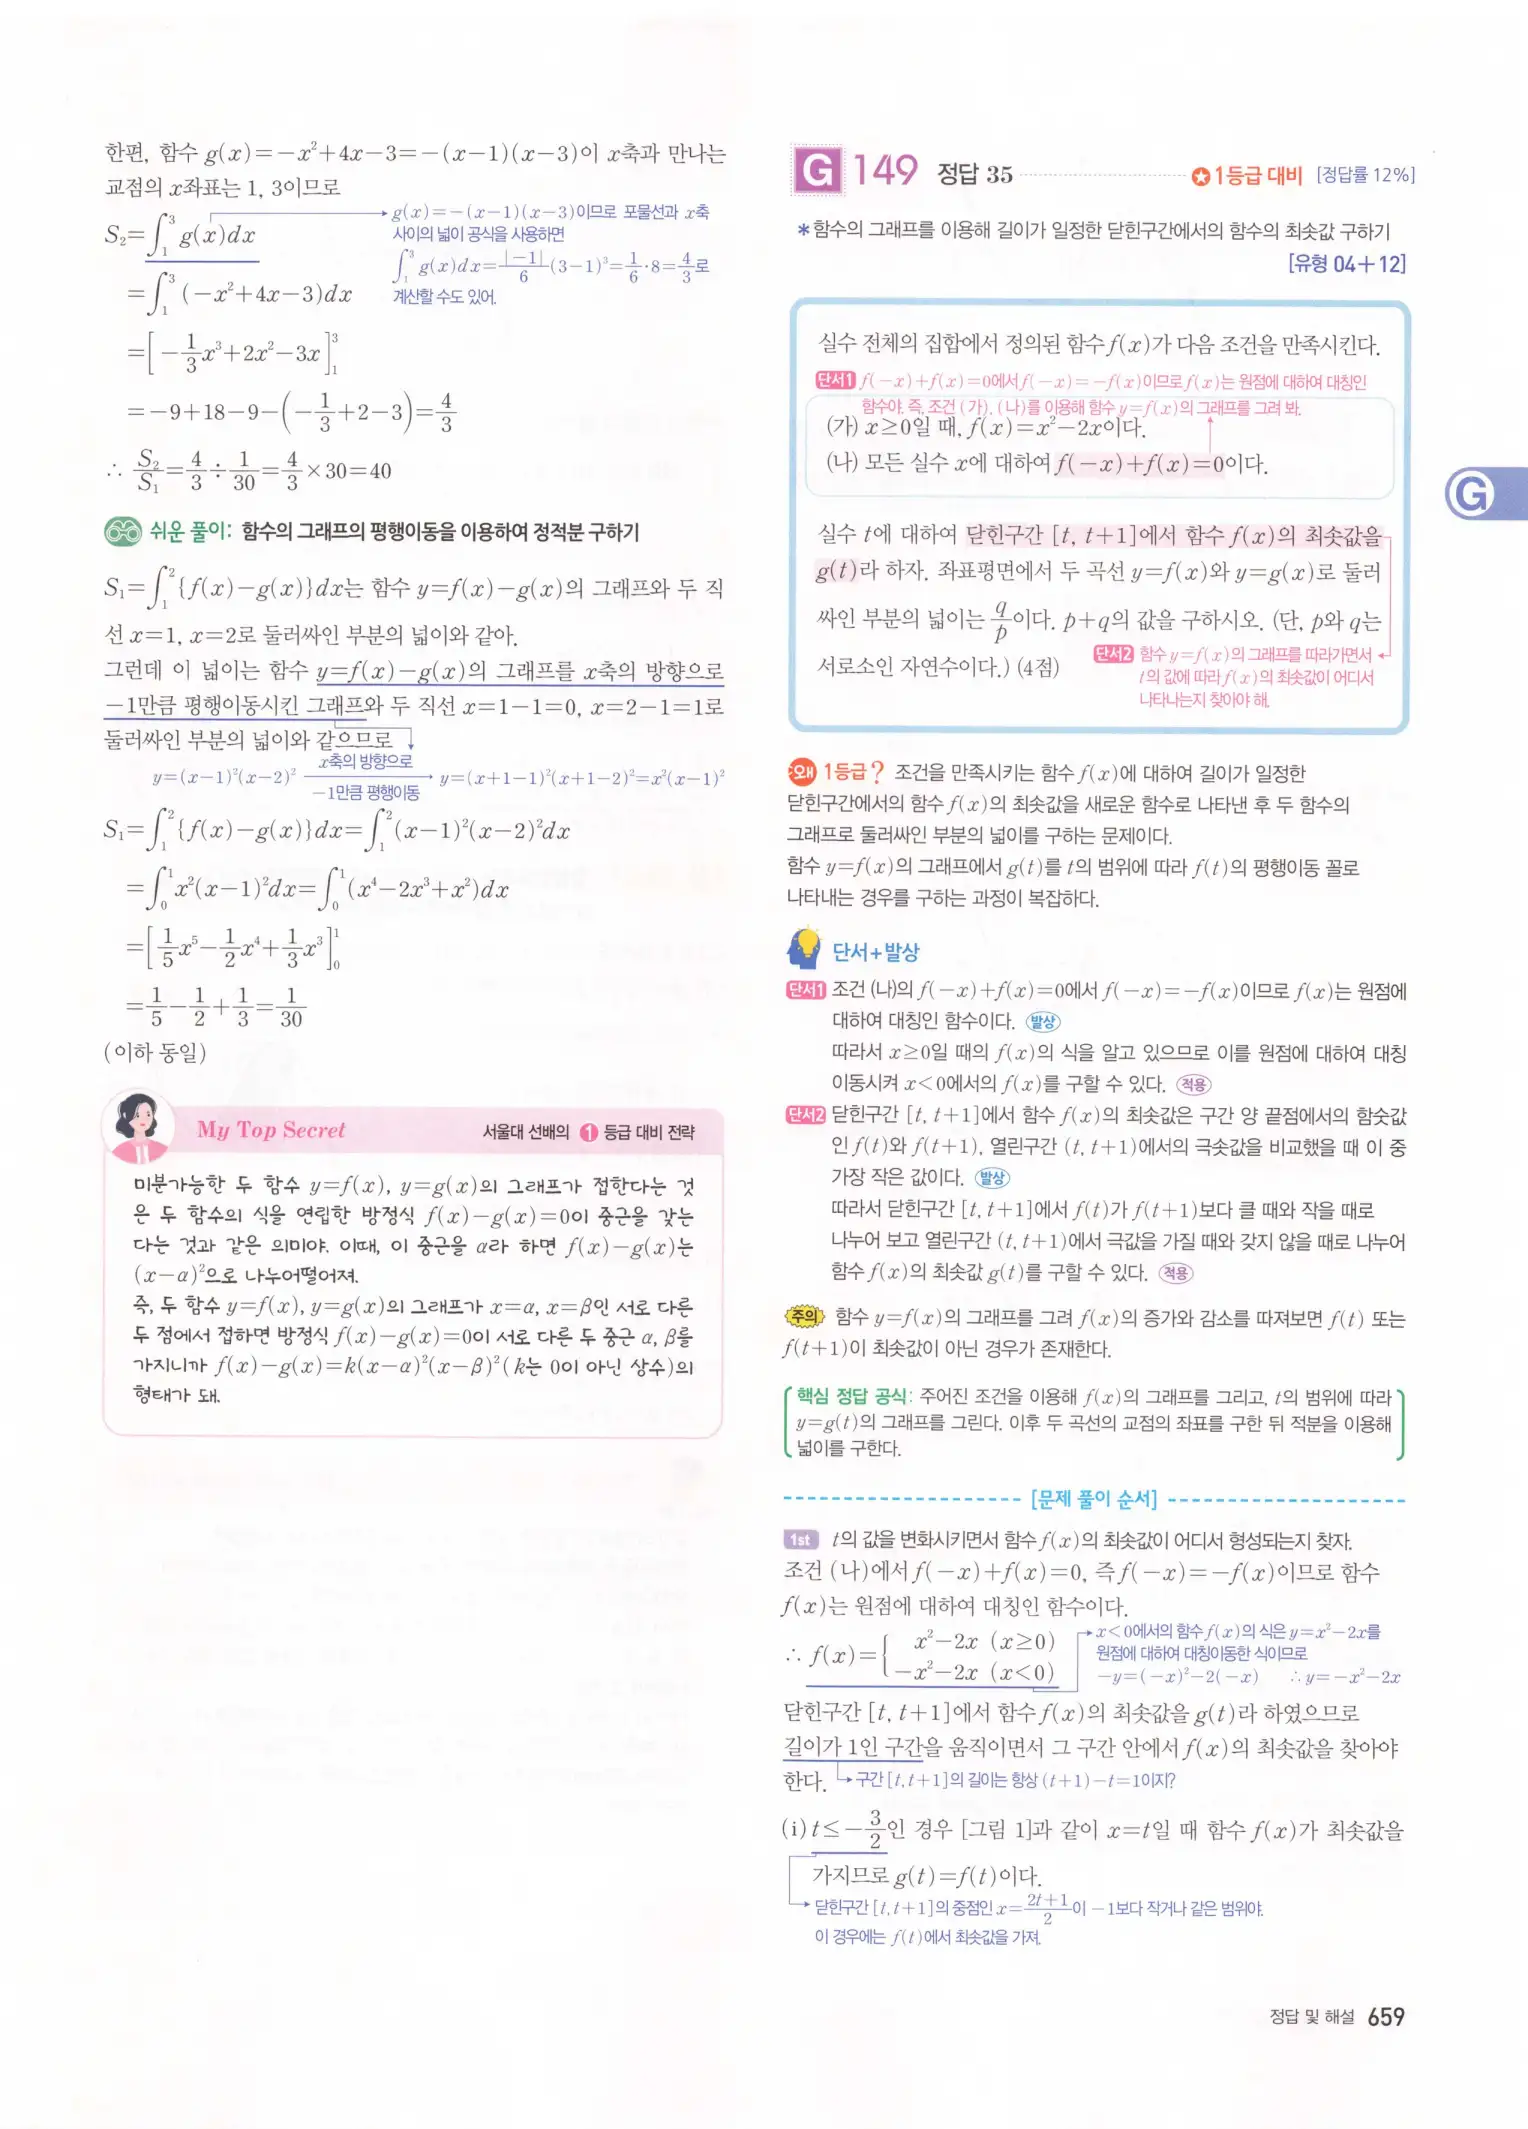 한편, 함수 g(x)=-x²+4x-3=-(x-1)(x-3)이 x축과 만나는
교점의 x좌표는 1, 3이므로
S₂=∫₁³ g(x)dx
g(x)=-(x-1)(x-3)이므로 포물선과 x축
사이의 넓이 공식을 사용하면
∫₁³ g(x)dx=|-1|/6(3-1)³=1/6·8=4/3로
계산할 수도 있어.
=∫₁³ (-x²+4x-3)dx
=[-1/3x³+2x²-3x]₁³
=-9+18-9-(-1/3+2-3)=4/3
∴ S₂/S₁=4/3÷1/30=4/3×30=40
쉬운 풀이: 함수의 그래프의 평행이동을 이용하여 정적분 구하기
S₁=∫₁²{f(x)-g(x)}dx는 함수 y=f(x)-g(x)의 그래프와 두 직
선 x=1, x=2로 둘러싸인 부분의 넓이와 같아.
그런데 이 넓이는 함수 y=f(x)-g(x)의 그래프를 x축의 방향으로
-1만큼 평행이동시킨 그래프와 두 직선 x=1-1=0, x=2-1=1로
둘러싸인 부분의 넓이와 같으므로
y=(x-1)²(x-2)² x축의 방향으로 -1만큼 평행이동 → y=(x+1-1)²(x+1-2)²=x²(x-1)²
S₁=∫₁²{f(x)-g(x)}dx=∫₁²(x-1)²(x-2)²dx
=∫₀¹x²(x-1)²dx=∫₀¹(x⁴-2x³+x²)dx
=[1/5x⁵-1/2x⁴+1/3x³]₀¹
=1/5-1/2+1/3=1/30
(이하 동일)
My Top Secret 서울대 선배의 1등급 대비 전략
미분가능한 두 함수 y=f(x), y=g(x)의 그래프가 접한다는 것
은 두 함수의 식을 연립한 방정식 f(x)-g(x)=0이 중근을 갖는
다는 것과 같은 의미야. 이때, 이 중근을 α라 하면 f(x)-g(x)는
(x-α)²으로 나누어떨어져.
즉, 두 함수 y=f(x), y=g(x)의 그래프가 x=α, x=β인 서로 다른
두 점에서 접하면 방정식 f(x)-g(x)=0이 서로 다른 두 중근 α, β를
가지니까 f(x)-g(x)=k(x-α)²(x-β)²(k는 0이 아닌 상수)의
형태가 돼.
G 149 정답 35 ★1등급 대비 [정답률 12%]
*함수의 그래프를 이용해 길이가 일정한 닫힌구간에서의 함수의 최솟값 구하기
[유형 04+12]
실수 전체의 집합에서 정의된 함수 f(x)가 다음 조건을 만족시킨다.
단서1 f(-x)+f(x)=0에서 f(-x)=-f(x)이므로 f(x)는 원점에 대하여 대칭인
함수야. 즉, 조건 (가), (나)를 이용해 함수 y=f(x)의 그래프를 그려 봐.
(가) x≥0일 때, f(x)=x²-2x이다.
(나) 모든 실수 x에 대하여 f(-x)+f(x)=0이다.
실수 t에 대하여 닫힌구간 [t, t+1]에서 함수 f(x)의 최솟값을
g(t)라 하자. 좌표평면에서 두 곡선 y=f(x)와 y=g(x)로 둘러
싸인 부분의 넓이는 q/p이다. p+q의 값을 구하시오. (단, p와 q는
서로소인 자연수이다.) (4점)
단서2 함수 y=f(x)의 그래프를 따라가면서
t의 값에 따라 f(x)의 최솟값이 어디서
나타나는지 찾아야 해.
왜 1등급? 조건을 만족시키는 함수 f(x)에 대하여 길이가 일정한
닫힌구간에서의 함수 f(x)의 최솟값을 새로운 함수로 나타낸 후 두 함수의
그래프로 둘러싸인 부분의 넓이를 구하는 문제이다.
함수 y=f(x)의 그래프에서 g(t)를 t의 범위에 따라 f(t)의 평행이동 꼴로
나타내는 경우를 구하는 과정이 복잡하다.
단서+발상
단서1 조건 (나)의 f(-x)+f(x)=0에서 f(-x)=-f(x)이므로 f(x)는 원점에
대하여 대칭인 함수이다. 발상
따라서 x≥0일 때의 f(x)의 식을 알고 있으므로 이를 원점에 대하여 대칭
이동시켜 x<0에서의 f(x)를 구할 수 있다. 적용
단서2 닫힌구간 [t, t+1]에서 함수 f(x)의 최솟값은 구간 양 끝점에서의 함숫값
인 f(t)와 f(t+1), 열린구간 (t, t+1)에서의 극솟값을 비교했을 때 이 중
가장 작은 값이다. 발상
따라서 닫힌구간 [t, t+1]에서 f(t)가 f(t+1)보다 클 때와 작을 때로
나누어 보고 열린구간 (t, t+1)에서 극값을 가질 때와 갖지 않을 때로 나누어
함수 f(x)의 최솟값 g(t)를 구할 수 있다. 적용
주의 함수 y=f(x)의 그래프를 그려 f(x)의 증가와 감소를 따져보면 f(t) 또는
f(t+1)이 최솟값이 아닌 경우가 존재한다.
핵심 정답 공식: 주어진 조건을 이용해 f(x)의 그래프를 그리고, t의 범위에 따라
y=g(t)의 그래프를 그린다. 이후 두 곡선의 교점의 좌표를 구한 뒤 적분을 이용해
넓이를 구한다.
[문제 풀이 순서]
1st t의 값을 변화시키면서 함수 f(x)의 최솟값이 어디서 형성되는지 찾자.
조건 (나)에서 f(-x)+f(x)=0, 즉 f(-x)=-f(x)이므로 함수
f(x)는 원점에 대하여 대칭인 함수이다.
∴ f(x)={ x²-2x (x≥0)
-x²-2x (x<0)
x<0에서의 함수 f(x)의 식은 y=x²-2x를
원점에 대하여 대칭이동한 식이므로
-y=(-x)²-2(-x) ∴ y=-x²-2x
닫힌구간 [t, t+1]에서 함수 f(x)의 최솟값을 g(t)라 하였으므로
길이가 1인 구간을 움직이면서 그 구간 안에서 f(x)의 최솟값을 찾아야
한다. 구간 [t, t+1]의 길이는 항상 (t+1)-t=1이지?
(i) t≤-3/2인 경우 [그림 1]과 같이 x=t일 때 함수 f(x)가 최솟값을
가지므로 g(t)=f(t)이다.
닫힌구간 [t, t+1]의 중점인 x=2t+1/2이 -1보다 작거나 같은 범위야.
이 경우에는 f(t)에서 최솟값을 가져.
G
정답 및 해설 659